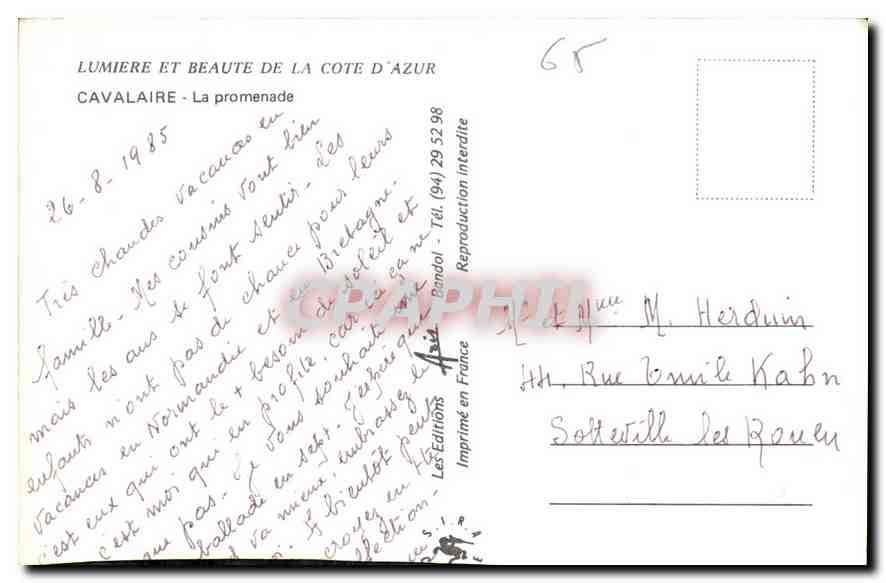 LUMIERE ET BEAUTE DE LA COTE D'AZUR
CAVALAIRE - La promenade
26-8-1985
Très chaudes vacances en
famille - Mes cousins vont bien
mais les ans se font sentir - Les
enfants n'ont pas de chance pour leurs
vacances en Normandie et en Bretagne.
c'est eux qui ont le + besoin de soleil et
c'est moi qui en profite, car ça ne
que pas - Je vous souhaite une
ballade en sept - J'espère que
va mieux, embrassez le
bientôt peut
croyez en
ection -
Les Editions Aris Bandol - Tél. (94) 29 52 98
Imprimé en France Reproduction interdite
S.I.R.A.E
65
Mr et Mme M. Herduin
44, Rue Emile Kahn
Sotteville les Rouen
CPAPHIL